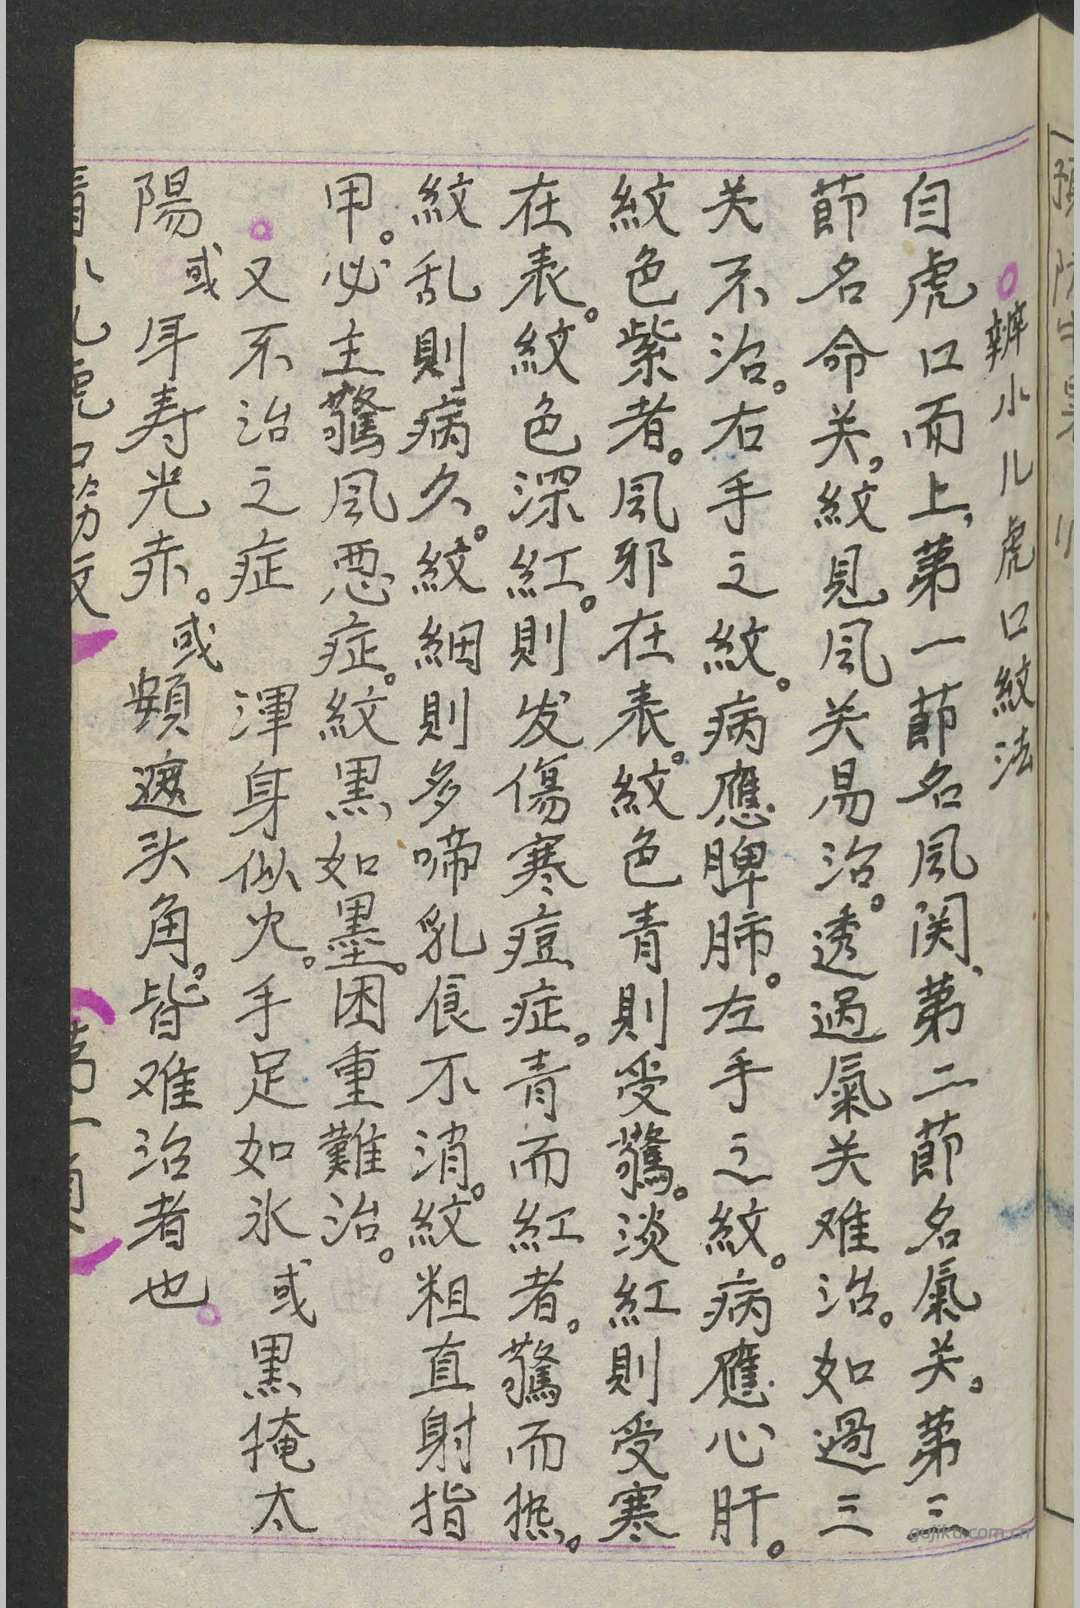 辨小儿虎口紋法
自虎口而上,第一節名風関、第二節名氣关。第三
節名命关。紋見風关易治。透過氣关难治。如過三
关不治。右手之紋。病應脾肺。左手之紋。病應心肝。
紋色紫者。風邪在表。紋色青則受驚。淡紅則受寒
在表。紋色深紅。則发傷寒痘症。青而紅者。驚而热。
紋乱則病久。紋細則多啼乳食不消。紋粗直射指
甲。必主驚風恶症。紋黑如墨。困重難治。
又不治之症 渾身似火。手足如氷或黑掩太
陽或耳寿光赤。或頰遮头角。皆难治者也。
gujiku.com.cn